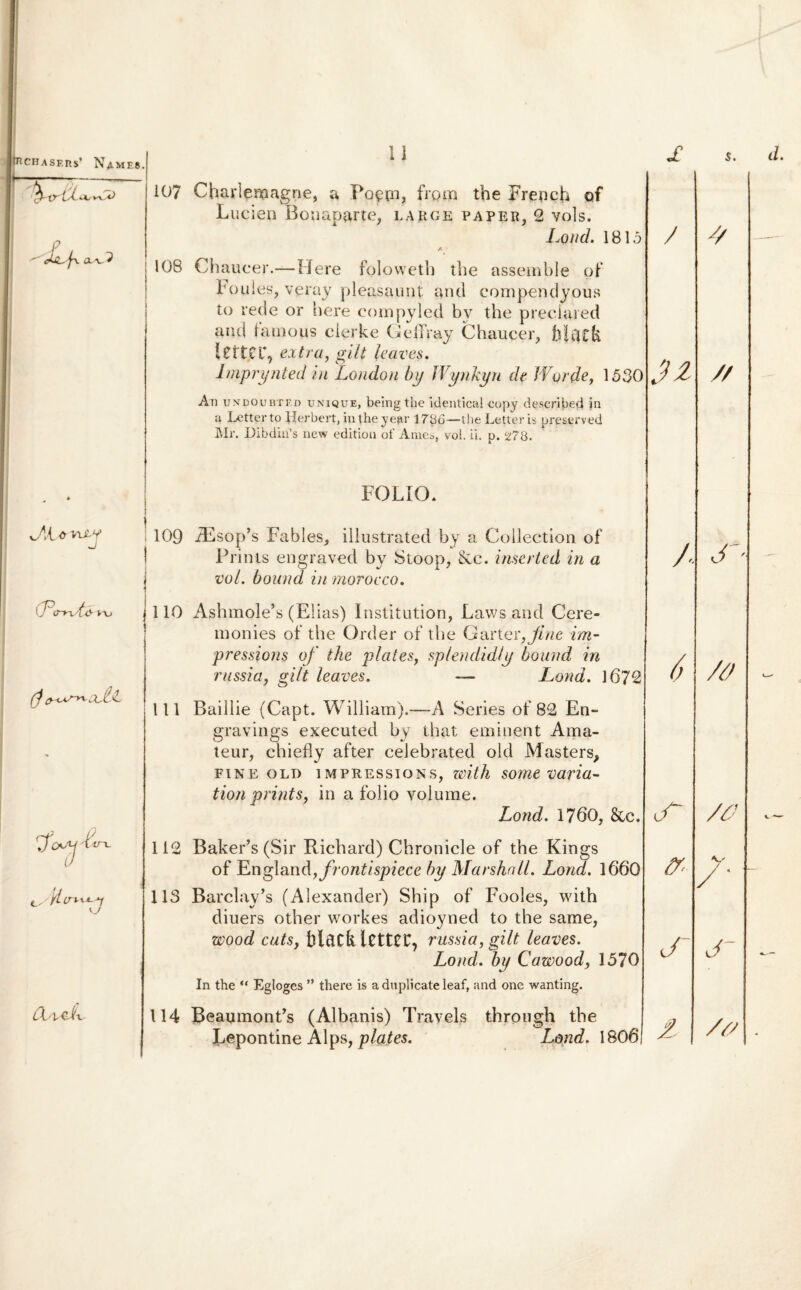 RCHASERS' NAMES.
11
£ s. d.
107 Charlemagne, a Poem, from the French of
Lucien Bonaparte, LARGE PAPER, 2 vols.
Lond. 1815
/ 4
108 Chaucer.—Here foloweth the assemble of
Foules, veray pleasaunt and compendyous
to rede or here compyled by the preclared
and famous clerke Geffray Chaucer, black
letter, extra, gilt leaves.
Imprynted in London by Wynkyn de Worde, 1530
32 //
An UNDOUBTED UNIQUE, being the identical copy described in
a Letter to Herbert, in the year 1786—the Letter is preserved
Mr. Dibdin's new edition of Ames, vol. ii. p. 278.
FOLIO.
Money
109 Æsop's Fables, illustrated by a Collection of
Prints engraved by Stoop, &c. inserted in a
vol. bound in morocco.
/ 5
110 Ashmole's (Elias) Institution, Laws and Cere-
monies of the Order of the Garter, fine im-
pressions of the plates, splendidly bound in
russia, gilt leaves. — Lond. 1672
6 10 -
111 Baillie (Capt. William).—A Series of 82 En-
gravings executed by that eminent Ama-
teur, chiefly after celebrated old Masters,
FINE OLD IMPRESSIONS, with some varia-
tion prints, in a folio volume.
Lond. 1760, &c.
5 10 -
Taylor
112 Baker's (Sir Richard) Chronicle of the Kings
of England, frontispiece by Marshall. Lond. 1660
7
Money
113 Barclay's (Alexander) Ship of Fooles, with
diuers other workes adioyned to the same,
wood cuts, black letter, russia, gilt leaves.
Lond. by Cawood, 1570
5 5 -
In the “ Egloges ” there is a duplicate leaf, and one wanting.
Arch
114 Beaumont's (Albanis) Travels through the
Lepontine Alps, plates. Lond. 1806
2 10